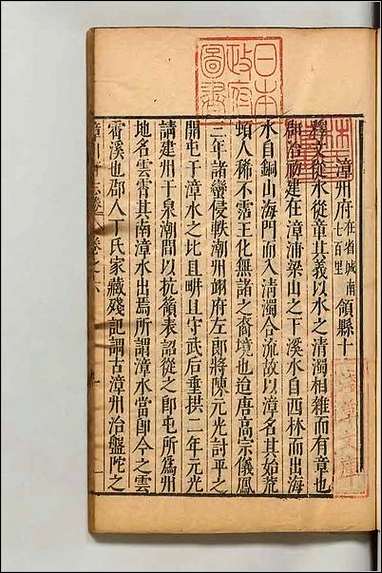 日本
政府
圖書
漳州府在省城南七百里領縣十
釋文從水從章其義以水之清濁相雜而有章也
郡治初建在漳浦梁山之下溪水自西林而出海
水自銅山海門而入清濁合流故以漳名其始荒
頑人稀不霑王化無諸之裔境也迨唐高宗儀鳳
三年諸蠻侵軼潮州翊府左郎將陳元光討平之
開屯于漳水之北且畊且守武后垂拱二年元光
請建州于泉潮間以抗嶺表詔從之即屯所為州
地名雲霄其南漳水出焉所謂漳水當即今之雲
霄溪也郡人丁氏家藏殘記謂古漳州治盤陀之
卷之六